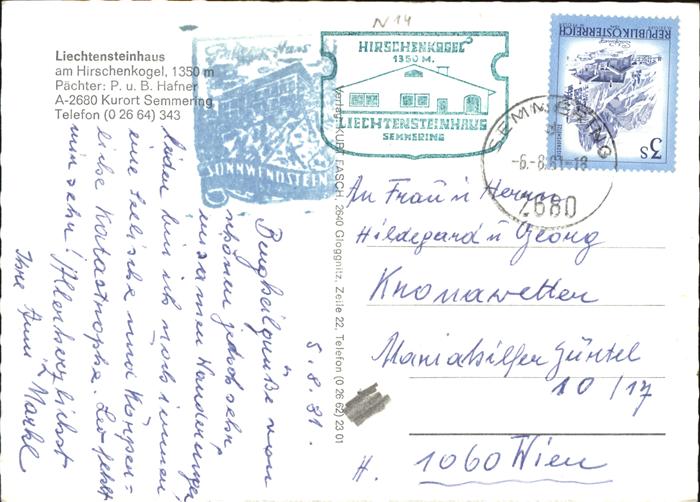 N 14
Liechtensteinhaus
am Hirschenkogel, 1350 m
Pächter: P. u. B. Hafner
A-2680 Kurort Semmering
Telefon (0 26 64) 343
Haus
SONNWENDSTEIN
HIRSCHENKOGEL
1350 M.
LIECHTENSTEINHAUS
SEMMERING
REPUBLIK ÖSTERREICH
3 S
SEMMERING
-6.-8.81-18
2680
Verlag: KURT FASCH, 2640 Gloggnitz, Zeile 22, Telefon (0 26 62) 23 01
5.8.81.
Bergheilgrüße von
schönen jedoch sehr
einsamen Wanderungen
leider bin ich noch immer
eine seelische und Körper-
liche Katastrophe. Leo fehlt
mir sehr! Allerherzlichst
Ihre Anni Markl
An Frau u Herrn
Hildegard u Georg
Kronawetter
Mariahilfer Gürtel
10/17
H. 1060 Wien